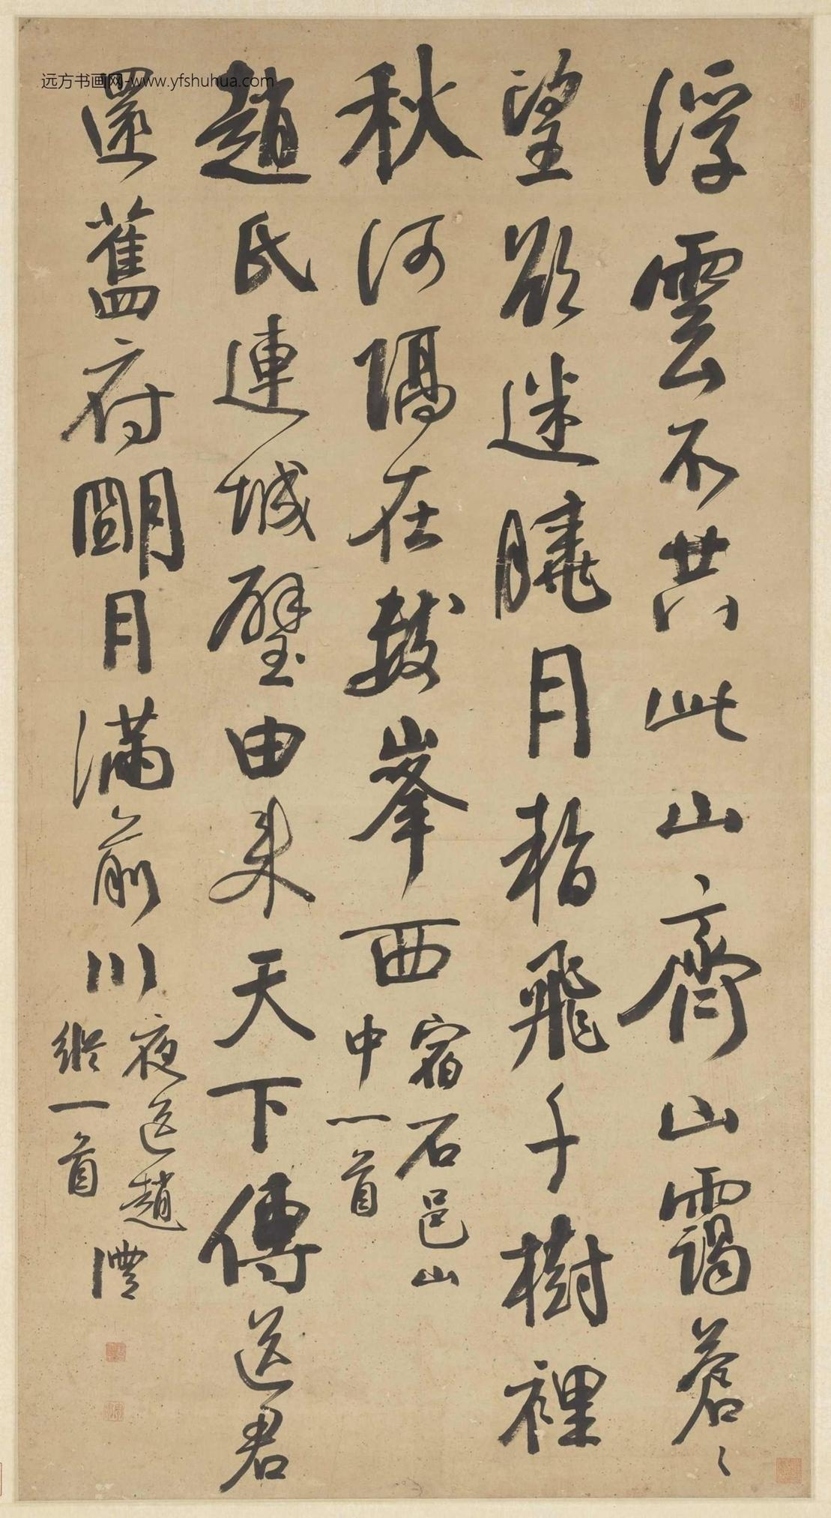 浮雲不共此山齊山靄蒼〻
望欲迷曉月暫飛千樹裡
秋河隔在數峯西
宿石邑山
中一首
趙氏連城璧由来天下傳送君
還舊府朙月滿前川
夜送趙
縱一首
灃
远方书画网-www.yfshuhua.com